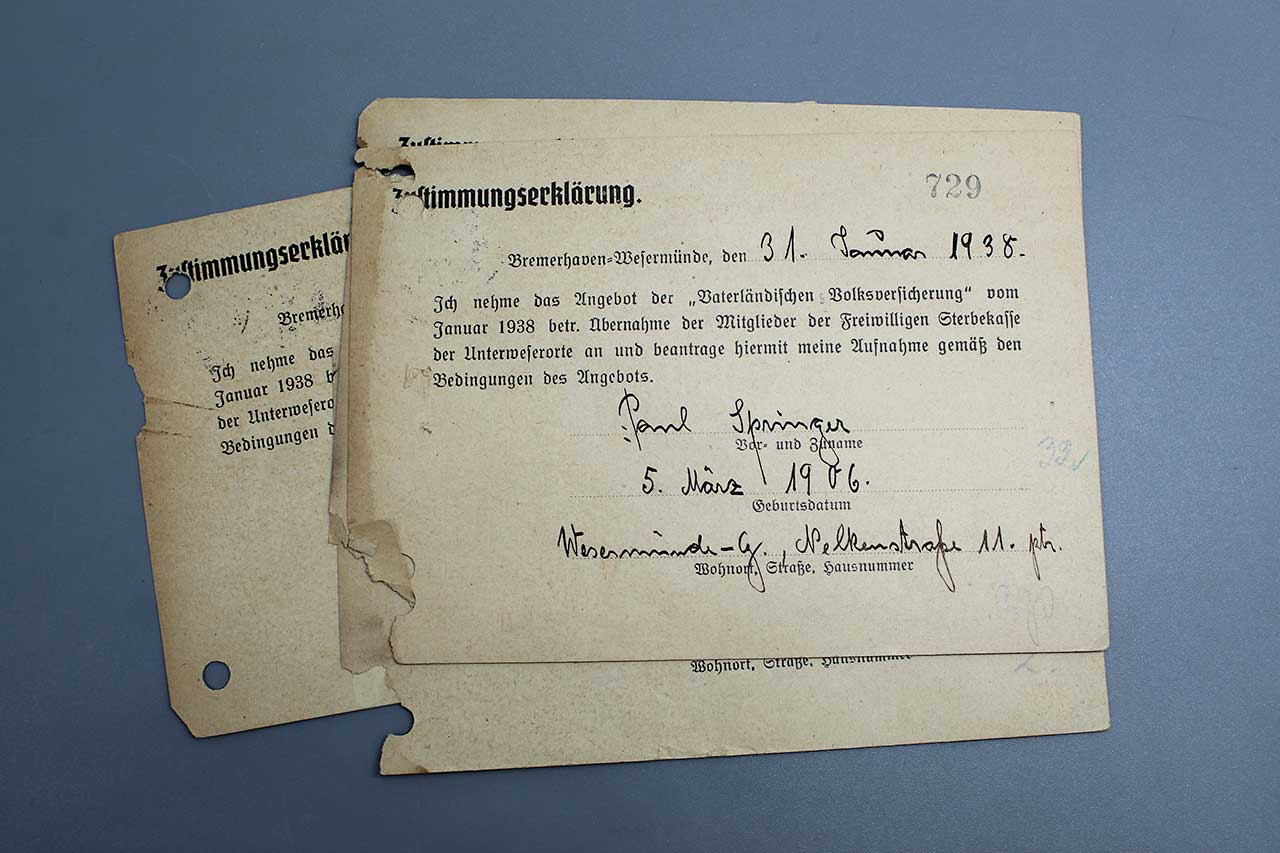 Zustimm
Zustimmungserklärung.
729
Bremerhaven-Wesermünde, den 31. Januar 1938.
Ich nehme das Angebot der „Vaterländischen Volksversicherung" vom
Januar 1938 betr. Übernahme der Mitglieder der Freiwilligen Sterbekasse
der Unterweserorte an und beantrage hiermit meine Aufnahme gemäß den
Bedingungen des Angebots.
Paul Springer
Vor- und Zuname
39
5. März 1906.
Geburtsdatum
Wesermünde-G., Nelkenstraße 11. ptr.
Wohnort, Straße, Hausnummer
Wohnort, Straße, Hausnummer
Zustimmungserklär
Bremerh
Ich nehme das
Januar 1938 b
der Unterwesero
Bedingungen d